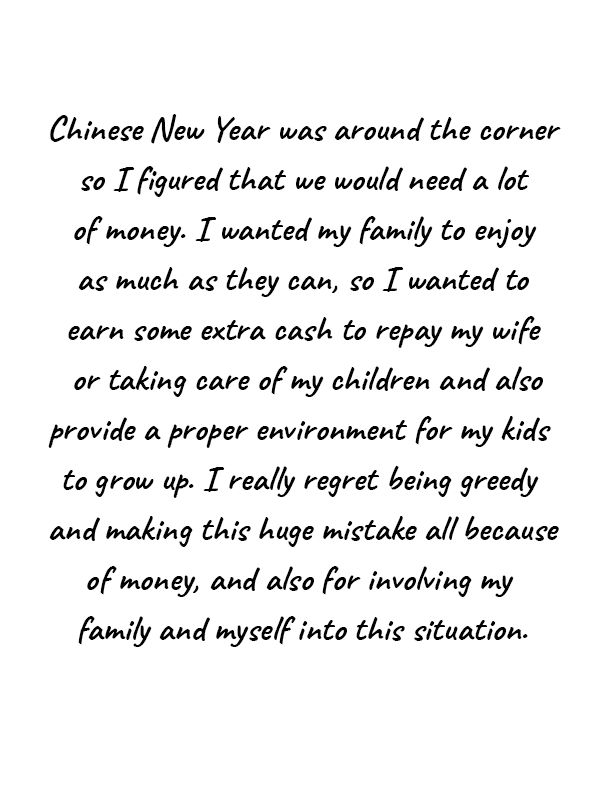 Chinese New Year was around the corner
so I figured that we would need a lot
of money. I wanted my family to enjoy
as much as they can, so I wanted to
earn some extra cash to repay my wife
or taking care of my children and also
provide a proper environment for my kids
to grow up. I really regret being greedy
and making this huge mistake all because
of money, and also for involving my
family and myself into this situation.